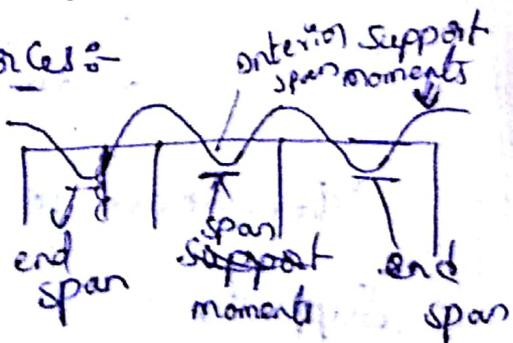 rces:-
interior support
span moments
end
span
span
support
moments
end
span